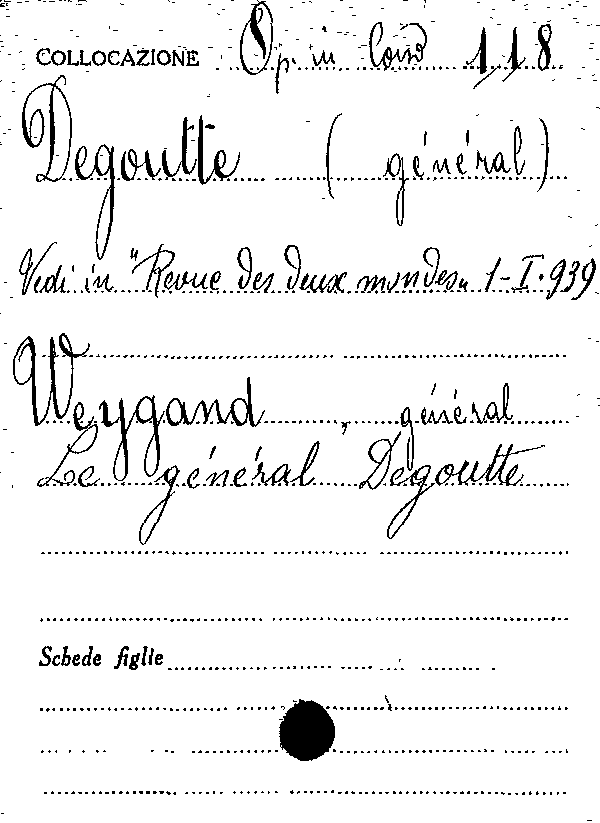 COLLOCAZIONE Op. in 118
Degoutte (général)
Vedi in "Revue des deux mondes" 1-I-939
Weygand, général
Le général Degoutte
Schede figlie